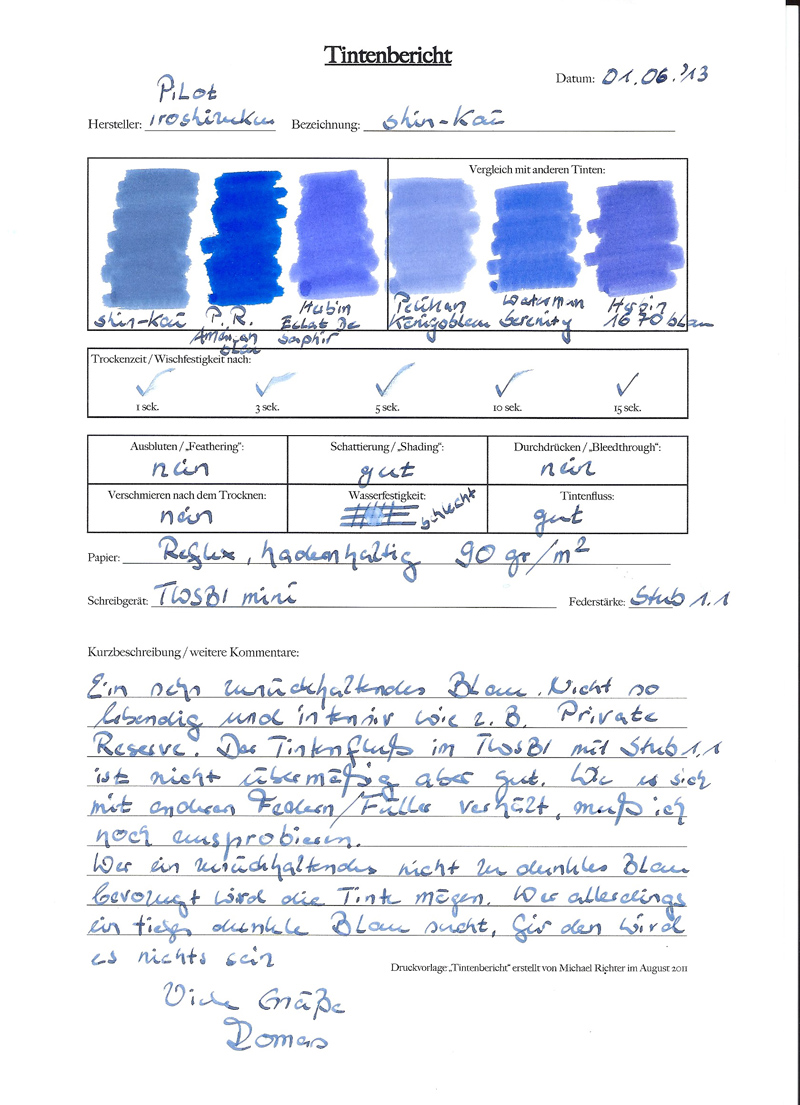 Tintenbericht
Datum: 01.06.'13
Pilot
Hersteller: Iroshizuku Bezeichnung: shin-Kai
Vergleich mit anderen Tinten:
shin-Kai P.R. American blue Herbin Eclat De Saphir Pelikan Königsblau Waterman Serenity Herbin 1670 blau
Trockenzeit / Wischfestigkeit nach:
1 sek. 3 sek. 5 sek. 10 sek. 15 sek.
Ausbluten / „Feathering": Schattierung / „Shading": Durchdrücken / „Bleedthrough":
nein gut nein
Verschmieren nach dem Trocknen: Wasserfestigkeit: Tintenfluss:
nein schlecht gut
Papier: Reflex, hadernhaltig 90 gr/m²
Schreibgerät: TWSBI mini Federstärke: Stub 1.1
Kurzbeschreibung / weitere Kommentare:
Ein sehr zurückhaltendes Blau. Nicht so
lebendig und intensiv wie z.B. Private
Reserve. Der Tintenfluß im TWSBI mit Stub 1.1
ist nicht übermäßig aber gut. Wie es sich
mit anderen Federn/Füller verhält, muß ich
noch ausprobieren.
Wer ein zurückhaltendes nicht zu dunkles Blau
bevorzugt wird die Tinte mögen. Wer allerdings
ein tiefes dunkle Blau sucht, für den wird
es nichts sein
Druckvorlage „Tintenbericht" erstellt von Michael Richter im August 2011
Viele Grüße